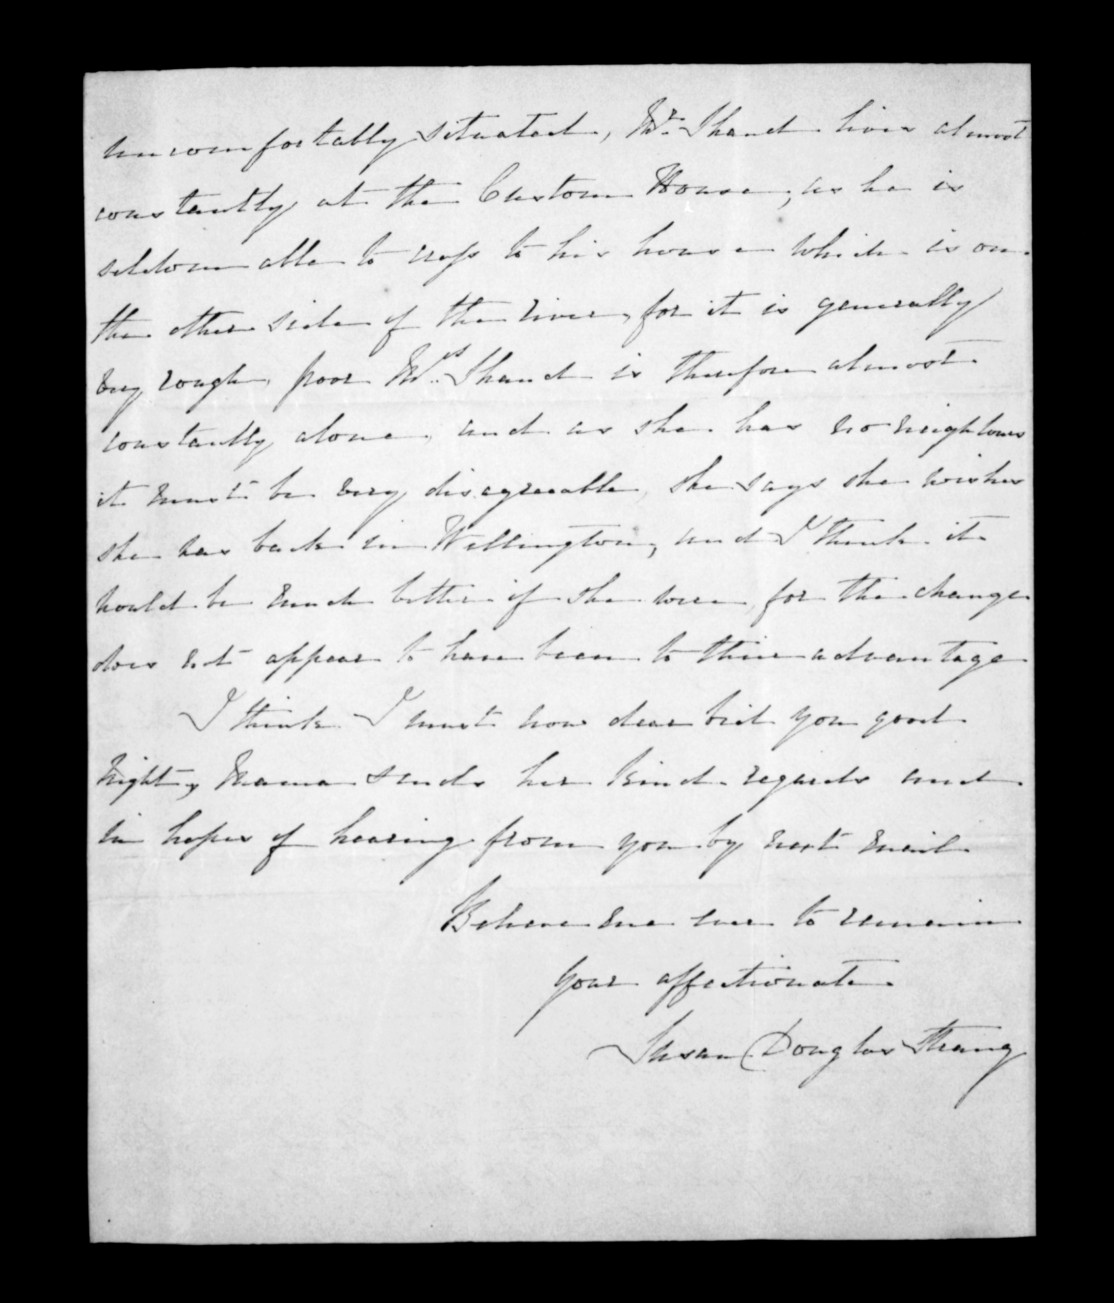 uncomfortably situated, Mr. Shand lives almost
constantly at the Custom House, as he is
seldom able to cross to his house which is on
the other side of the river, for it is generally
very rough, poor Mrs. Shand is therefore almost
constantly alone, and as she has no neighbours
it must be very disagreeable, she says she wishes
she was back in Wellington, and I think it
would be much better if she were, for the change
does not appear to have been to their advantage
I think I must now dear bid you good
night, Mama sends her kind regards and
in hopes of hearing from you by next mail
Believe me ever to remain
your affectionate
Susan Douglas Strang